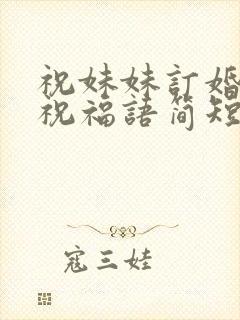 祝妹妹訂婚
祝福語简短
寇三娃